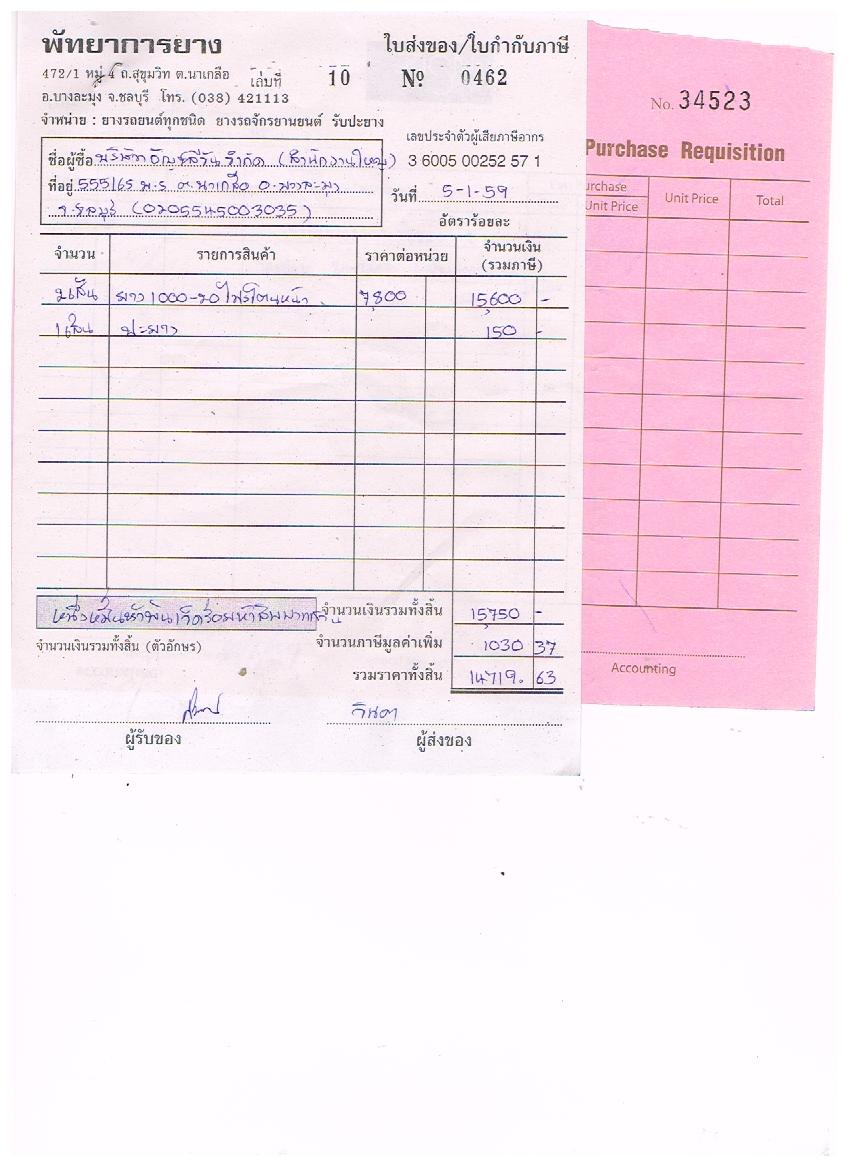 พัทยาการยาง
ใบส่งของ/ใบกำกับภาษี
472/1 หมู่ 4 ถ.สุขุมวิท ต.นาเกลือ
เล่มที่ 10 № 0462
อ.บางละมุง จ.ชลบุรี โทร. (038) 421113
จำหน่าย : ยางรถยนต์ทุกชนิด ยางรถจักรยานยนต์ รับปะยาง
เลขประจำตัวผู้เสียภาษีอากร
3 6005 00252 57 1
ชื่อผู้ซื้อ บริษัท จำกัด (สำนักงานใหญ่)
ที่อยู่ 555/65 ม.5 ต.นาเกลือ อ.บางละมุง
จ.ชลบุรี (0205545003035)
วันที่ 5-1-59
อัตราร้อยละ
จำนวน รายการสินค้า ราคาต่อหน่วย จำนวนเงิน (รวมภาษี)
2เส้น ยาง 1000-20 7,800 15,600 -
1เส้น ปะยาง 150 -
หนึ่งหมื่นห้าพันเจ็ดร้อยห้าสิบบาทถ้วน จำนวนเงินรวมทั้งสิ้น 15,750 -
จำนวนเงินรวมทั้งสิ้น (ตัวอักษร) จำนวนภาษีมูลค่าเพิ่ม 1030 37
รวมราคาทั้งสิ้น 14719. 63
จินดา
ผู้รับของ ผู้ส่งของ
No. 34523
Purchase Requisition
urchase
Unit Price Unit Price Total
Accounting